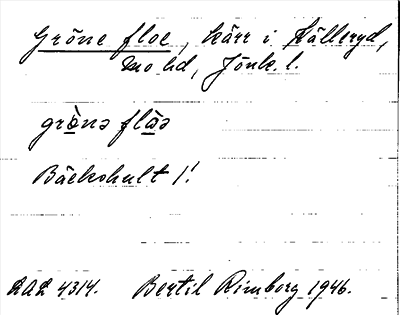 Gröne floe, kärr i Källeryd,
Mo hd, Jönk. l.
grò̱nə flä̱ə
Bäckshult 1!
LAL 4314. Bertil Rimborg 1946.